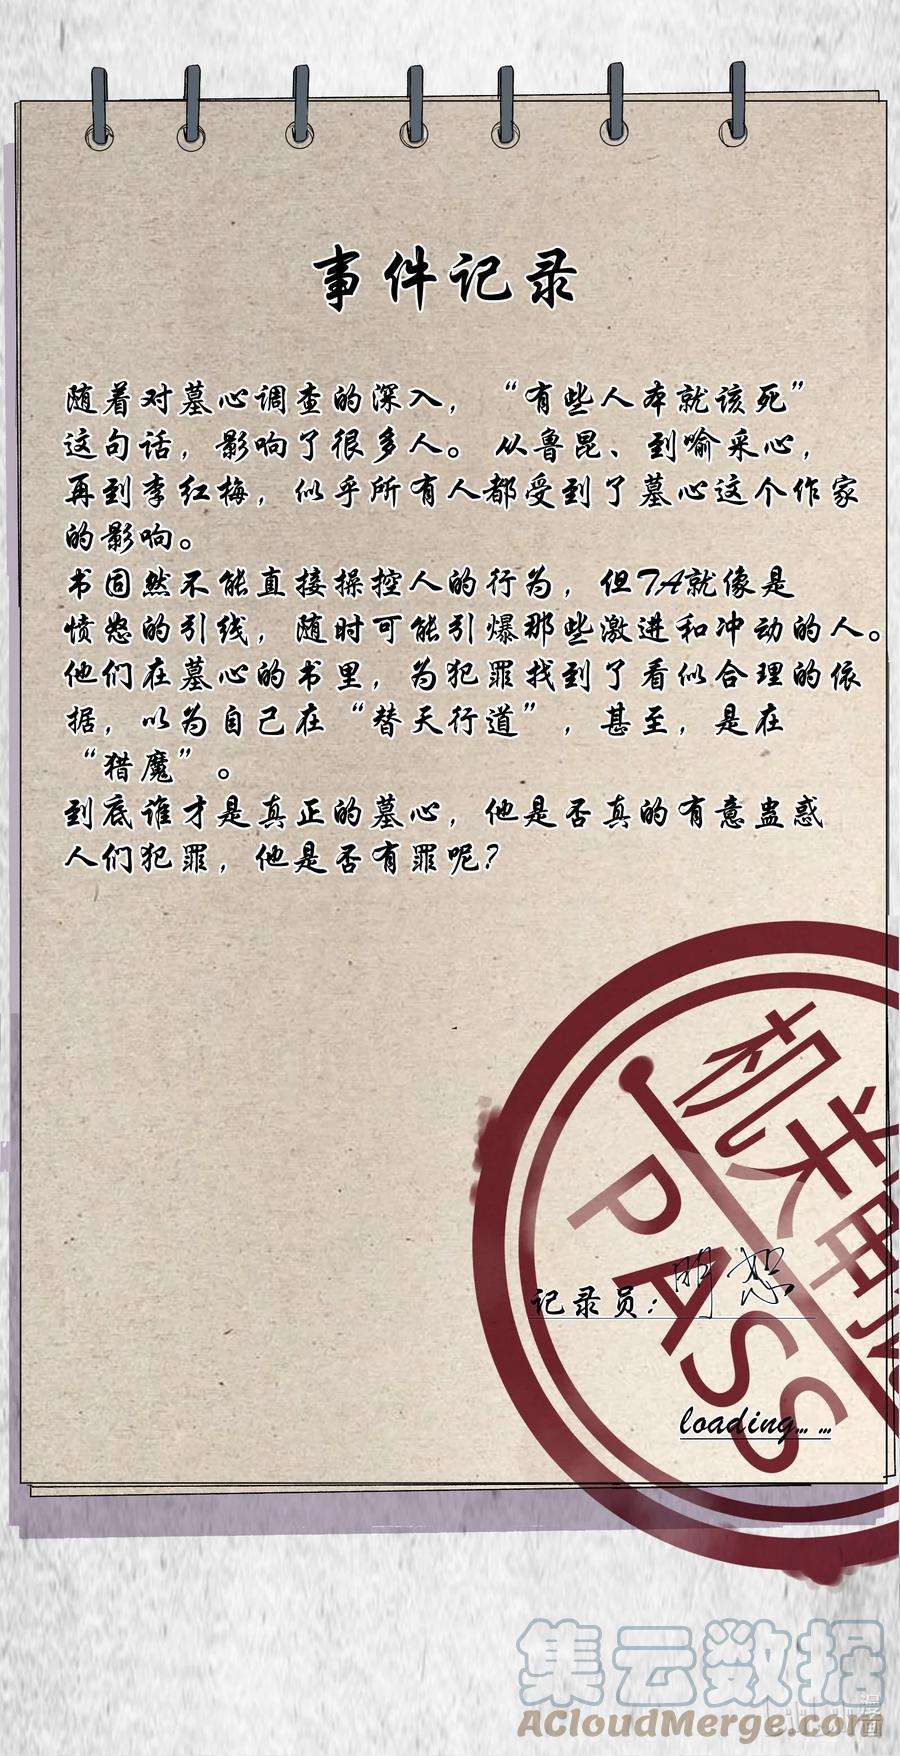 事件记录
随着对墓心调查的深入，“有些人本就该死”
这句话，影响了很多人。从鲁昆、到喻采心，
再到李红梅，似乎所有人都受到了墓心这个作家
的影响。
书固然不能直接操控人的行为，但TA就像是
愤怒的引线，随时可能引爆那些激进和冲动的人。
他们在墓心的书里，为犯罪找到了看似合理的依
据，以为自己在“替天行道”，甚至，是在
“猎魔”。
到底谁才是真正的墓心，他是否真的有意蛊惑
人们犯罪，他是否有罪呢？
机关再
PASS
记录员：明恕
loading... ...
集云数据
ACloudMerge.com
漫画